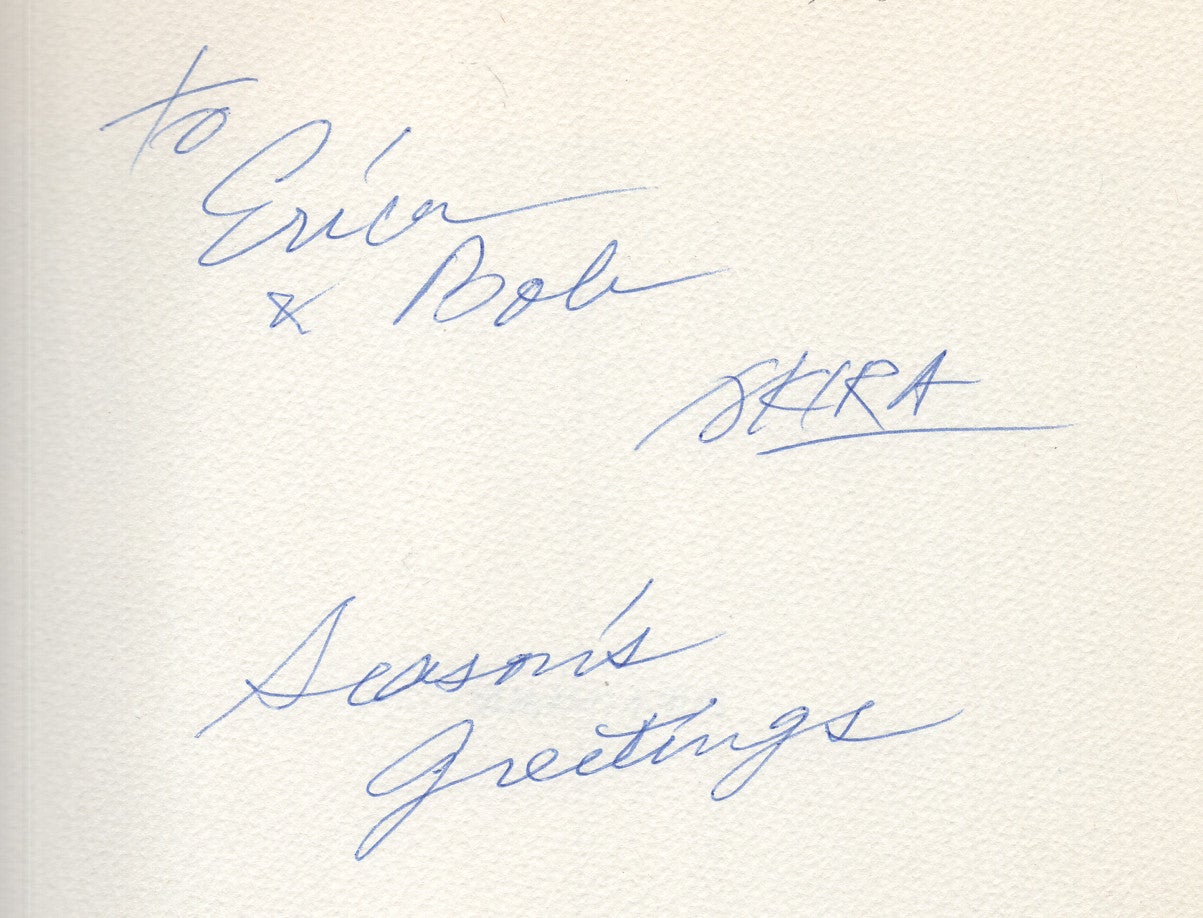 to
Erica
& Bob
AKIRA
Season's
Greetings